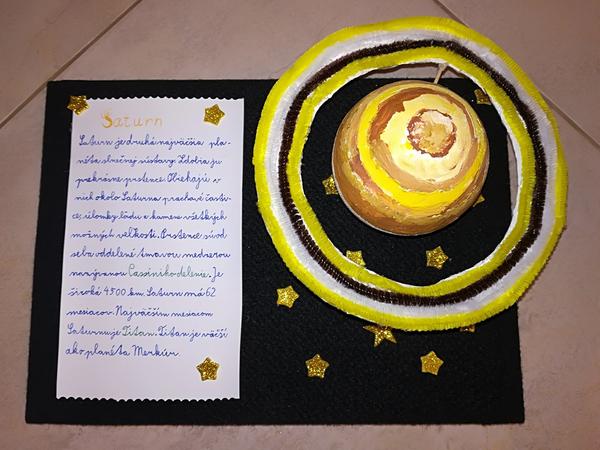 Saturn
Saturn je druhá najväčšia pla-
néta slnečnej sústavy. Zdobia ju
prekrásne prstence. Obiehajú v
nich okolo Saturna prachové časti-
ce, úlomky ľadu a kamene všetkých
možných veľkostí. Prstence sú od
seba oddelené tmavou medzerou
nazývanou Cassiniho delenie. Je
široká 4500 km. Saturn má 62
mesiacov. Najväčším mesiacom
Saturnu je Titan. Titan je väčší
ako planéta Merkúr.